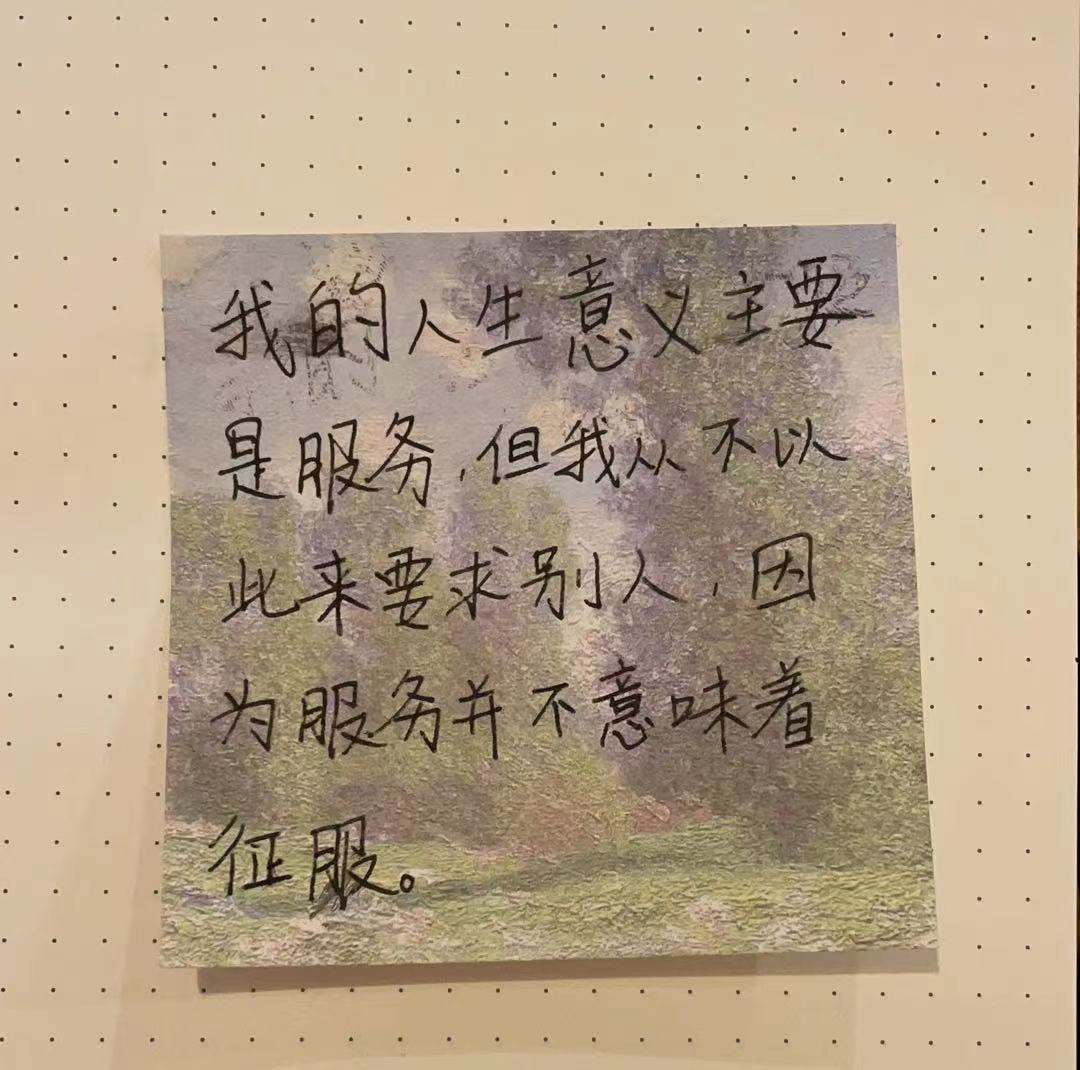 我的人生意义主要
是服务,但我从不以
此来要求别人,因
为服务并不意味着
征服。